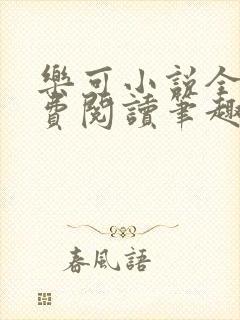 樂可小說全
費閱讀筆趣
春風語